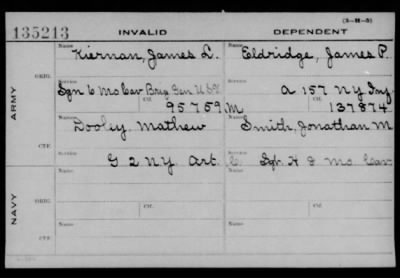 (3-H-5)
135213 INVALID DEPENDENT
Name Name
Kiernan, James L. Eldridge, James P.
ORIG. Service Service
Sgn 6 Mo Cav Brig Gen U.S.V. A 157 NY Inf.
ARMY Ctf. 95759 M Ctf. 137874
Name Name
Dooley, Mathew Smith, Jonathan M
CTF. Service Service
G 2 N.Y. Art. Sgt. H 8 Mo. Cav
NAVY
ORIG. Name Ctf. Name Ctf.
CTF. Name Name